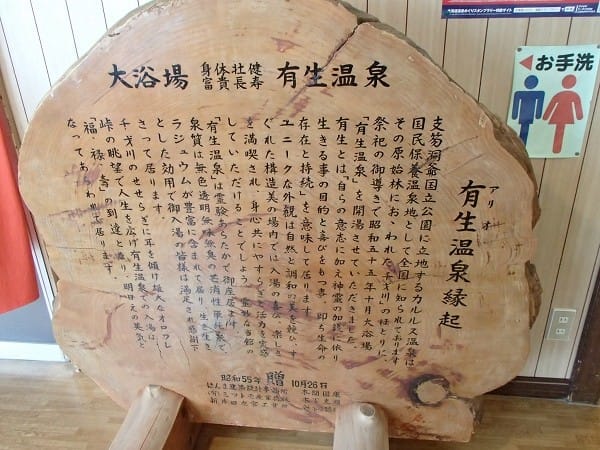 お手洗
大浴場 身体壮健 富貴長寿 有生温泉
有生温泉縁起
アリオ
支笏洞爺国立公園に立地するカルルス温泉は
国民保養温泉地として全国に知られております
その原始林におゝわれた千才川の畔とりに、
祭祀の御導きで昭和五十五年十月大浴場
「有生温泉」を開湯させていただきました。
有生とは「自らの意志に加え神霊の加護に依り
生きる事の目的と喜びをもつ事、即ち生命の
存在と持続」を意味して居ります。
ユニークな外観は自然と調和の美を競い、す
ぐれた構造美の場内では入湯の喜び、楽しさ
を満喫され、身心共にやすらぎと活力を実感
していただけることでしょう。霊妙な当館の
「有生温泉」は霊験あらたかで御座居ます。
泉質は無色透明無味無臭の芒硝性単純泉で
ラジュウムが豊富に含まれて居り、生き生き
とした効用で御入湯の皆様は満足され感謝下
さって居ります。
千才川のせせらぎに耳を傾け雄大なオロフレ
峠の眺望で人生を広げ有生温泉での入湯は、
「福、禄、寿」の到達と直り、明日えの英気と
なってあらわれて居ります。
昭和55年 贈 10月26日